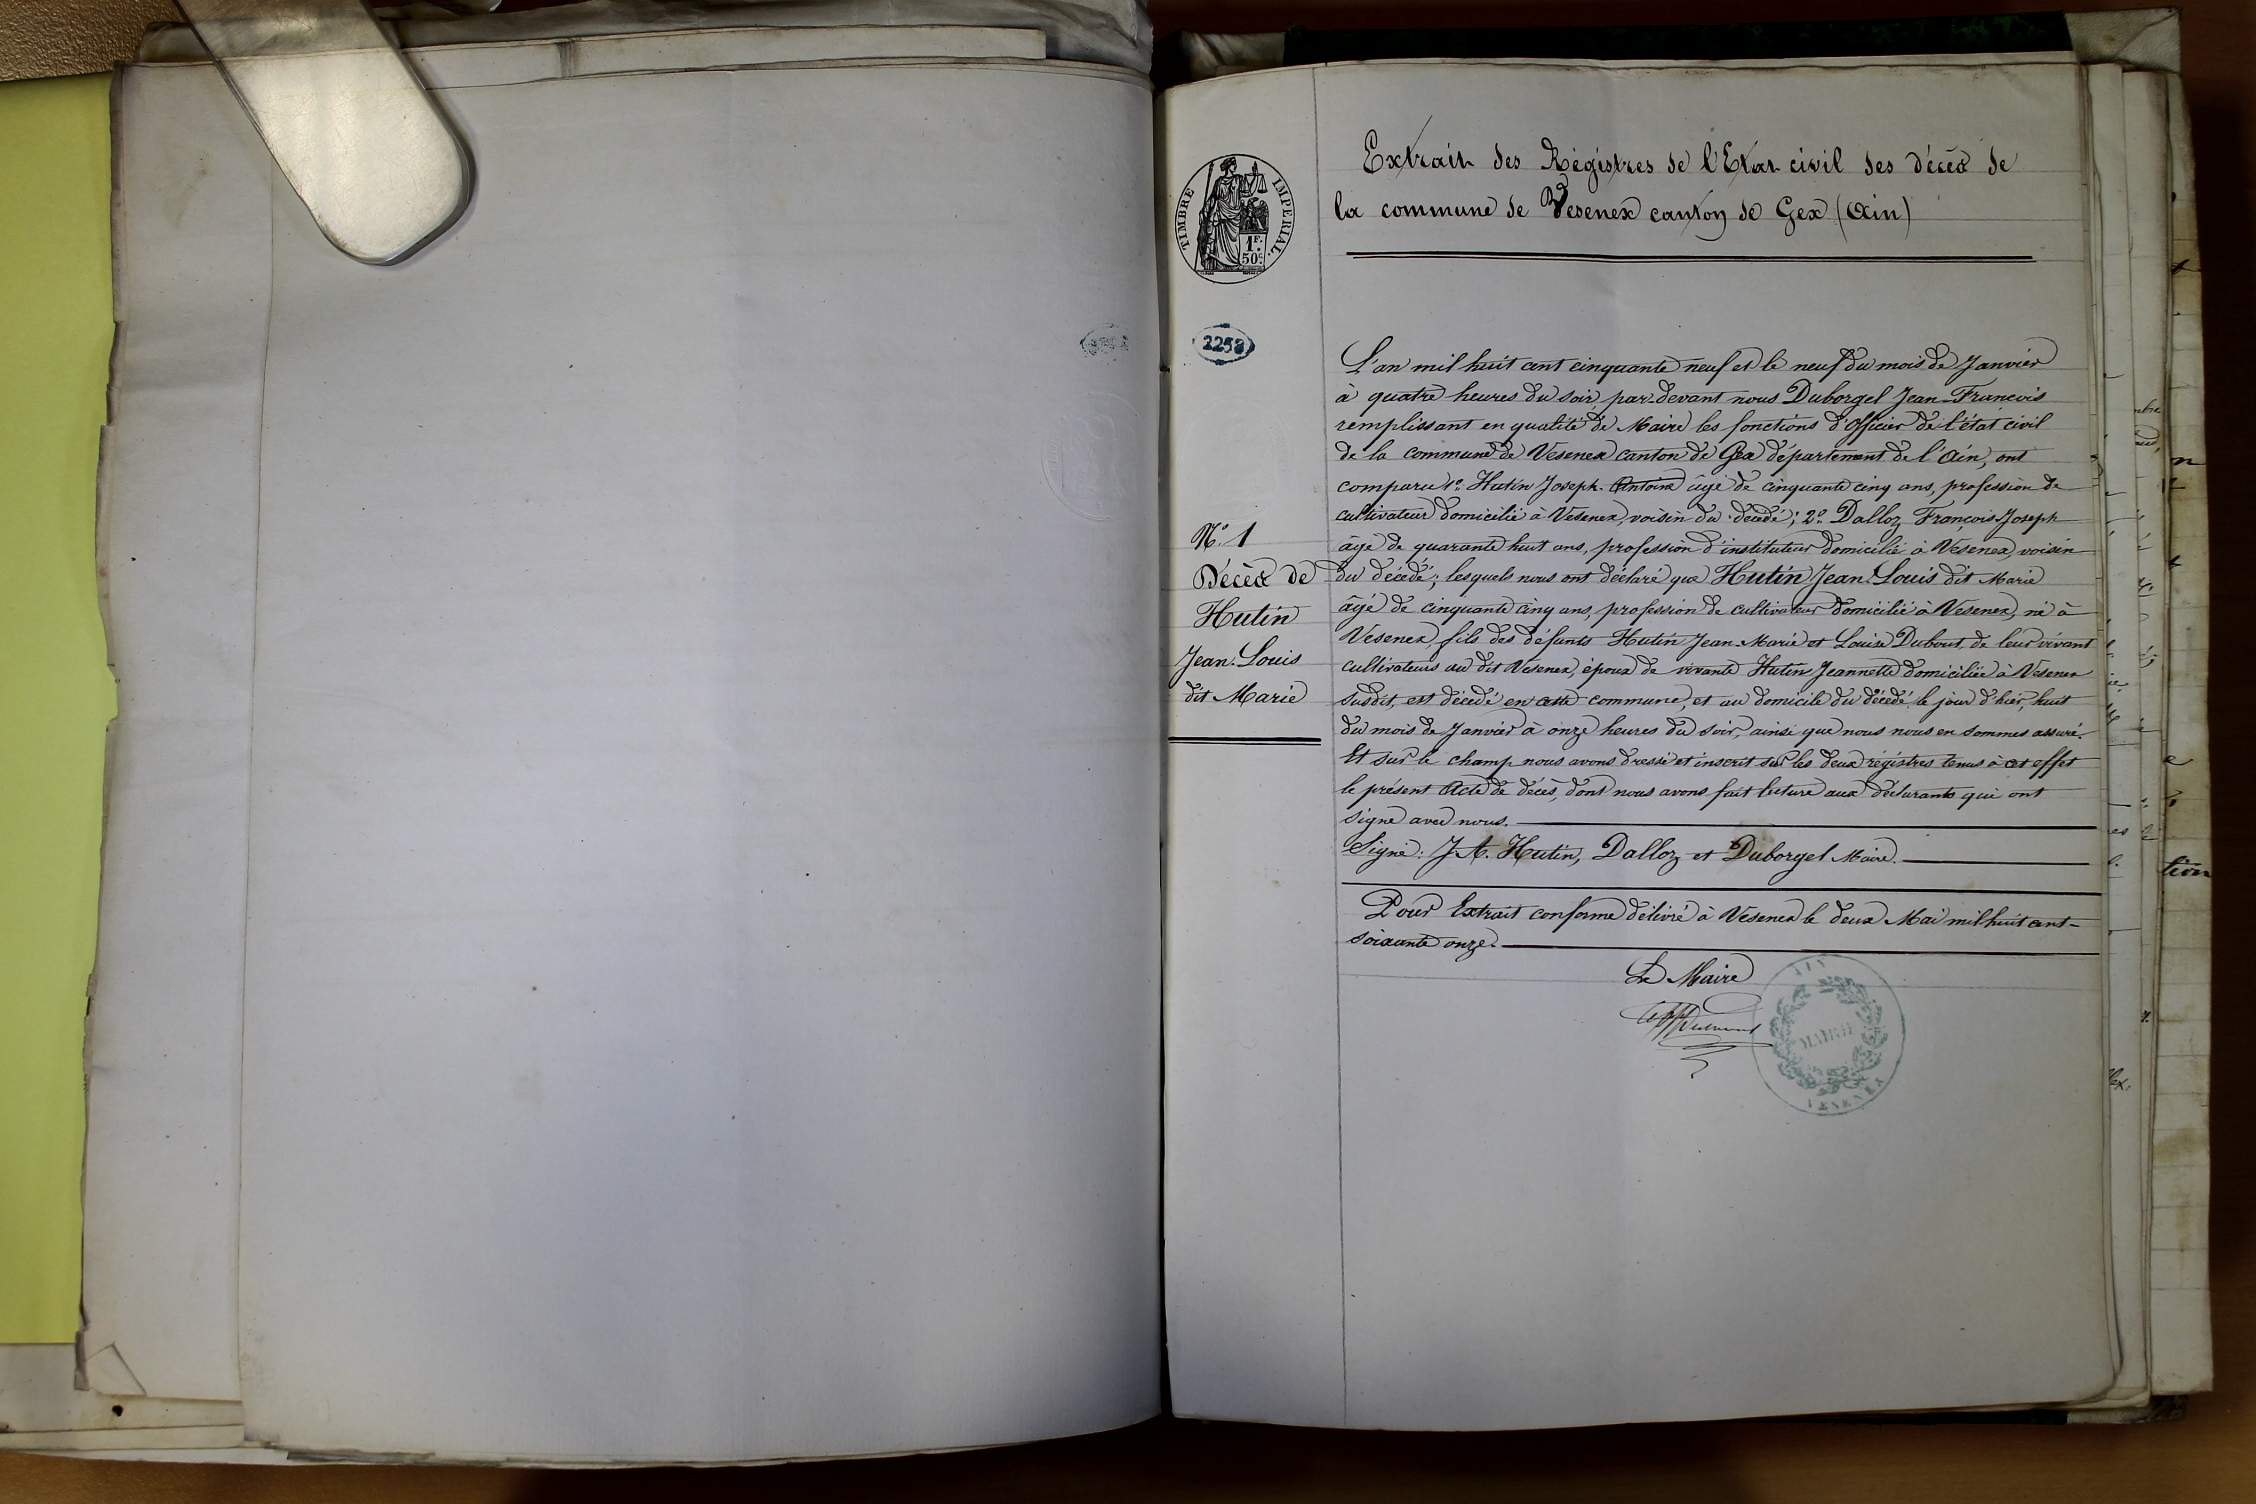 Extrait des Régistres de l'Etat civil des décès de
la commune de Vesenex canton de Gex (Ain)
TIMBRE IMPERIAL.
1F.
50c.
2258
L'an mil huit cent cinquante neuf et le neuf du mois de Janvier
à quatre heures du soir, par-devant nous Duborgel Jean-François
remplissant en qualité de Maire les fonctions d'Officier de l'état civil
de la commune de Vesenex canton de Gex département de l'Ain, ont
comparu 1° Hutin Joseph-Antoine âgé de cinquante cinq ans, profession de
cultivateur domicilié à Vesenex, voisin du décédé; 2° Dalloz François Joseph
âgé de quarante huit ans, profession d'instituteur domicilié à Vesenex, voisin
du décédé; lesquels nous ont déclaré que Hutin Jean-Louis dit Marie
âgé de cinquante cinq ans, profession de cultivateur domicilié à Vesenex, né à
Vesenex, fils des défunts Hutin Jean-Marie et Louise Dubout, de leur vivant
cultivateurs au dit Vesenex, époux de vivante Hutin Jeannette domiciliée à Vesenex
susdit, est décédé en cette commune, et au domicile du décédé, le jour d'hier, huit
du mois de Janvier à onze heures du soir, ainsi que nous nous en sommes assuré.
Et sur le champ nous avons dressé et inscrit sur les deux régistres tenus à cet effet
le présent Acte de décès, dont nous avons fait lecture aux déclarants qui ont
signé avec nous.
Signé: J. A. Hutin, Dalloz et Duborgel Maire.
N° 1
Décès de
Hutin
Jean-Louis
dit Marie
Pour Extrait conforme délivré à Vesenex le deux Mai mil huit cent-
soixante onze.
Le Maire
AIN
MAIRIE
VESENEX